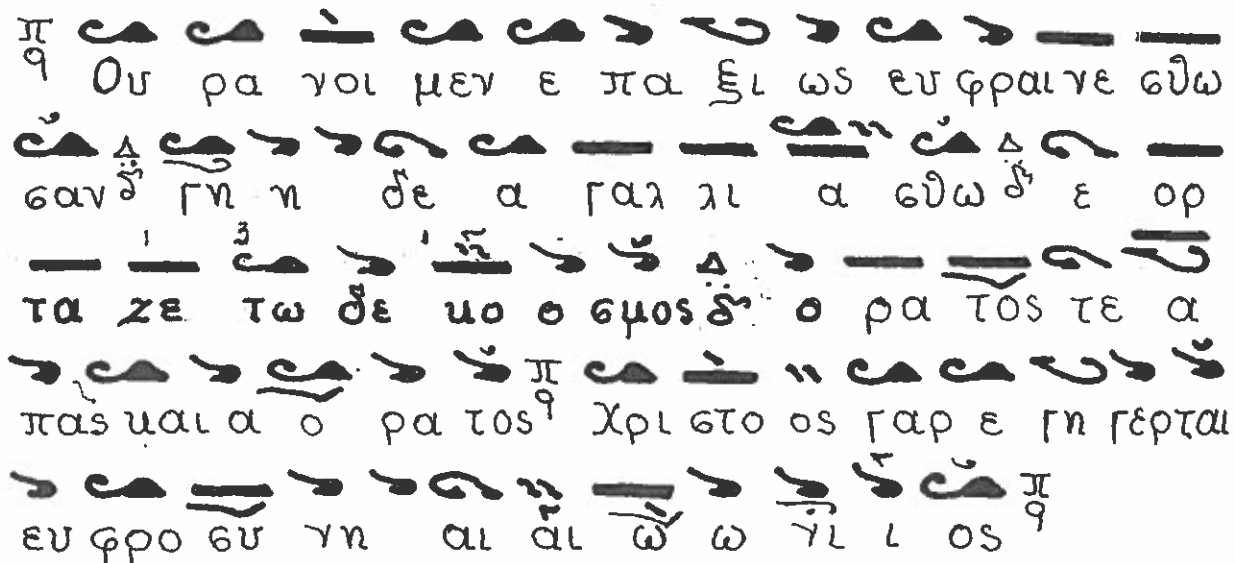 Ου ρα νοι μεν ε πα ξι ως ευ φραι νε σθω
σαν γη η δε α γαλ λι α σθω ε ορ
τα ζε τω δε κο ο σμος ο ρα τος τε α
πας και α ο ρα τος Χρι στο ος γαρ ε γη γερται
ευ φρο συ νη αι αι ω ω νι ι ος